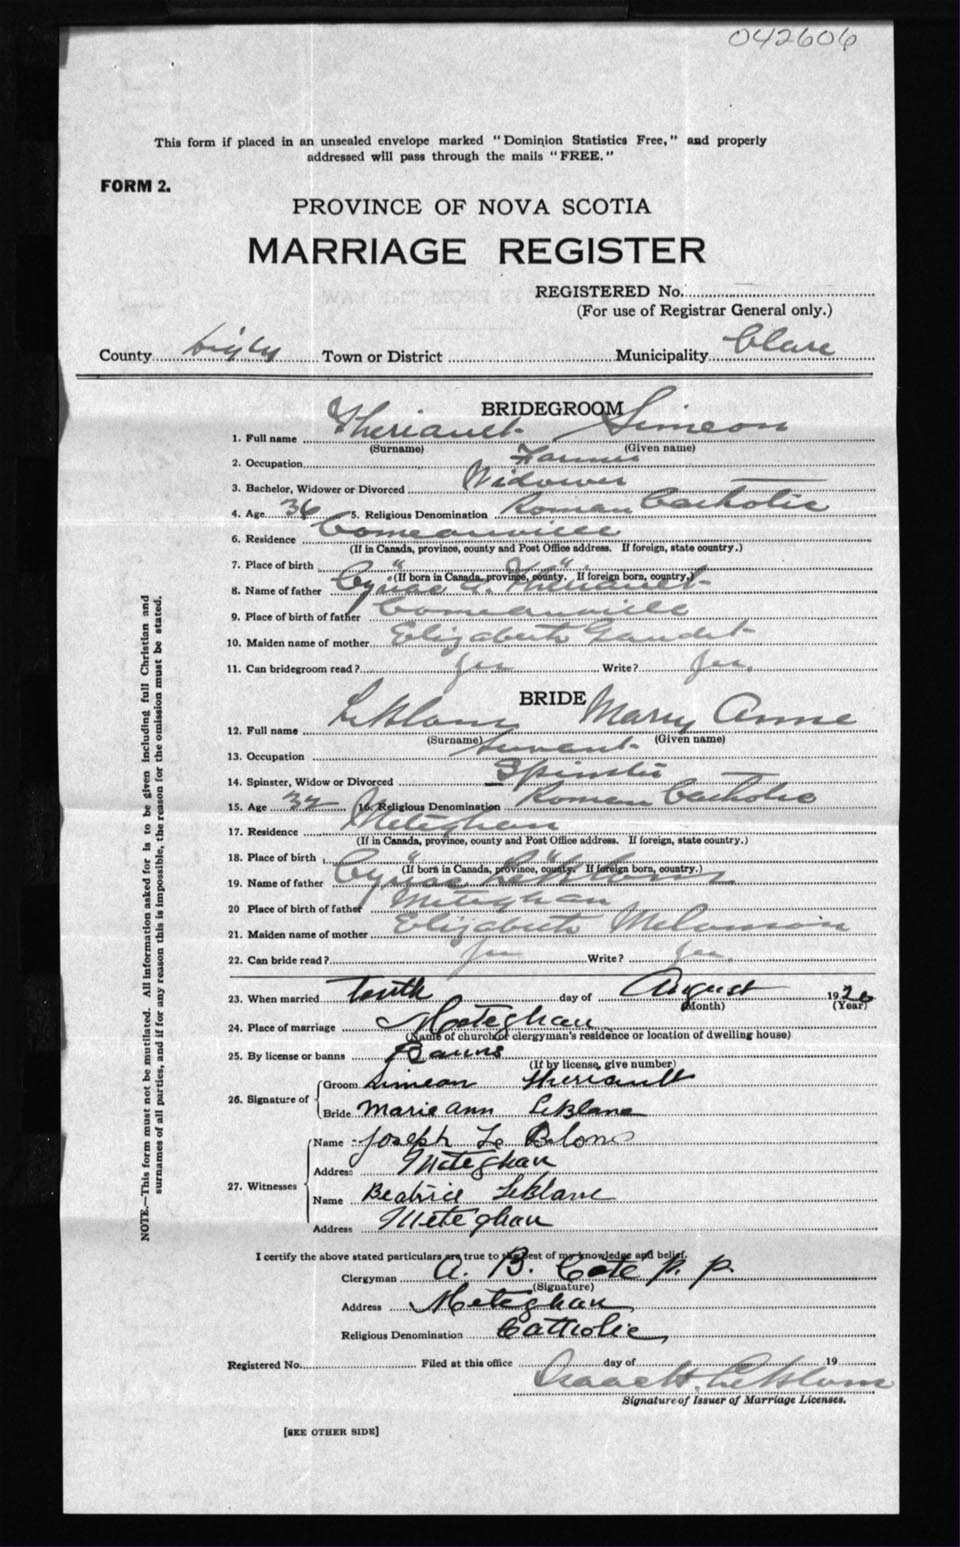 042606
This form if placed in an unsealed envelope marked "Dominion Statistics Free," and properly
addressed will pass through the mails "FREE."
FORM 2.
PROVINCE OF NOVA SCOTIA
MARRIAGE REGISTER
REGISTERED No.
(For use of Registrar General only.)
County Digby Town or District Municipality Clare
BRIDEGROOM
1. Full name Theriault Simeon
(Surname) (Given name)
2. Occupation Farmer
3. Bachelor, Widower or Divorced Widower
4. Age 36 5. Religious Denomination Roman Catholic
6. Residence Comeauville
(If in Canada, province, county and Post Office address. If foreign, state country.)
7. Place of birth " "
(If born in Canada, province, county. If foreign born, country.)
8. Name of father Cyriac A. Theriault
9. Place of birth of father Comeauville
10. Maiden name of mother Elizabeth Gaudet
11. Can bridegroom read? Yes Write? Yes.
BRIDE
12. Full name LeBlanc Mary Anne
(Surname) (Given name)
13. Occupation Servant
14. Spinster, Widow or Divorced Spinster
15. Age 32 16. Religious Denomination Roman Catholic
17. Residence Meteghan
(If in Canada, province, county and Post Office address. If foreign, state country.)
18. Place of birth " "
(If born in Canada, province, county. If foreign born, country.)
19. Name of father Cyriac LeBlanc
20 Place of birth of father Meteghan
21. Maiden name of mother Elizabeth Melanson
22. Can bride read? Yes Write? Yes.
23. When married Tenth day of August 1926
(Month) (Year)
24. Place of marriage Meteghan
(Name of church or clergyman's residence or location of dwelling house)
25. By license or banns Banns
(If by license, give number)
26. Signature of
Groom Simeon Theriault
Bride Marie Ann LeBlanc
27. Witnesses
Name Joseph Le Blanc
Address Meteghan
Name Beatrice LeBlanc
Address Meteghan
I certify the above stated particulars are true to the best of my knowledge and belief.
Clergyman A. B. Cote p. p.
(Signature)
Address Meteghan
Religious Denomination Catholic
Registered No. Filed at this office day of 19
Isaac H. LeBlanc
Signature of Issuer of Marriage Licenses.
[SEE OTHER SIDE]
NOTE.—This form must not be mutilated. All information asked for is to be given including full Christian and
surnames of all parties, and if for any reason this is impossible, the reason for the omission must be stated.